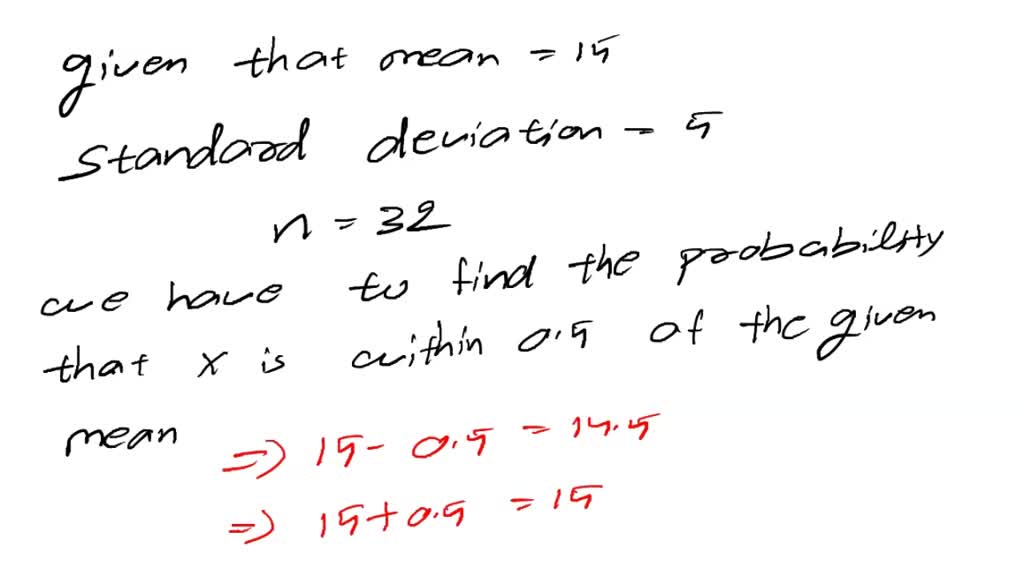 given that mean = 15
Standard deviation = 5
n = 32
we have to find the probability
that x is within 0.5 of the given
mean
=> 15 - 0.5 = 14.5
=> 15 + 0.5 = 15